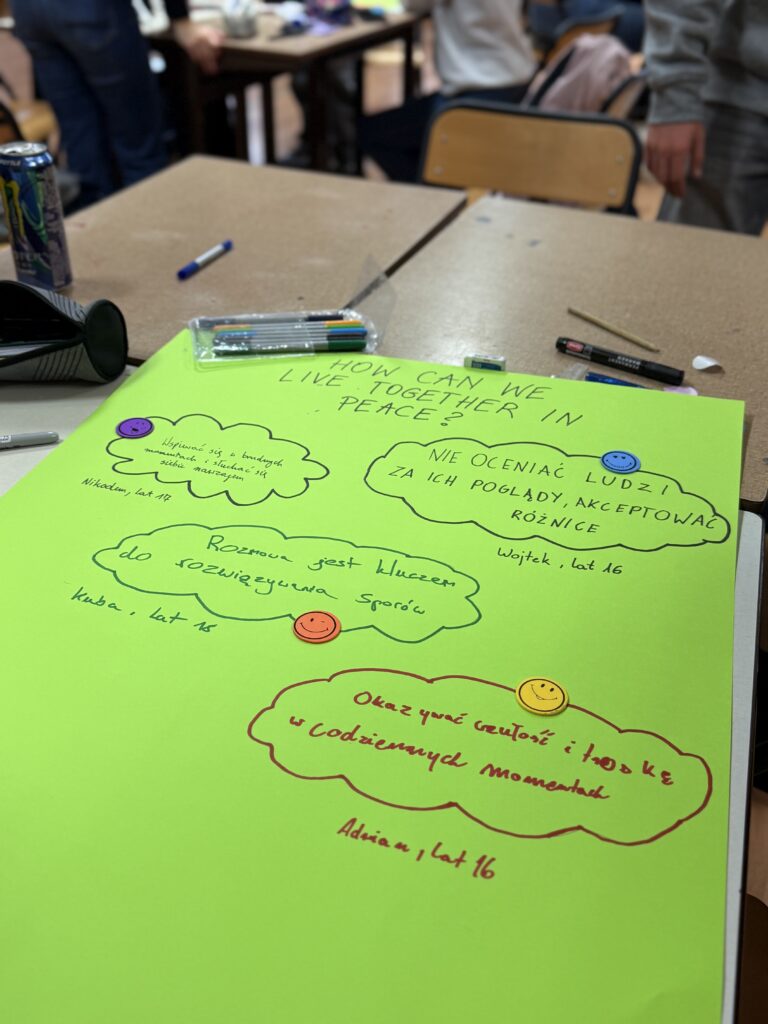 HOW CAN WE
LIVE TOGETHER IN
PEACE?
Wspierać się w trudnych
momentach i słuchać się
siebie nawzajem
Nikodem, lat 17
NIE OCENIAĆ LUDZI
ZA ICH POGLĄDY, AKCEPTOWAĆ
RÓŻNICE
Wojtek, lat 16
Rozmowa jest kluczem
do rozwiązywania sporów
Kuba, lat 16
Okazywać czułość i troskę
w codziennych momentach
Adrian, lat 16